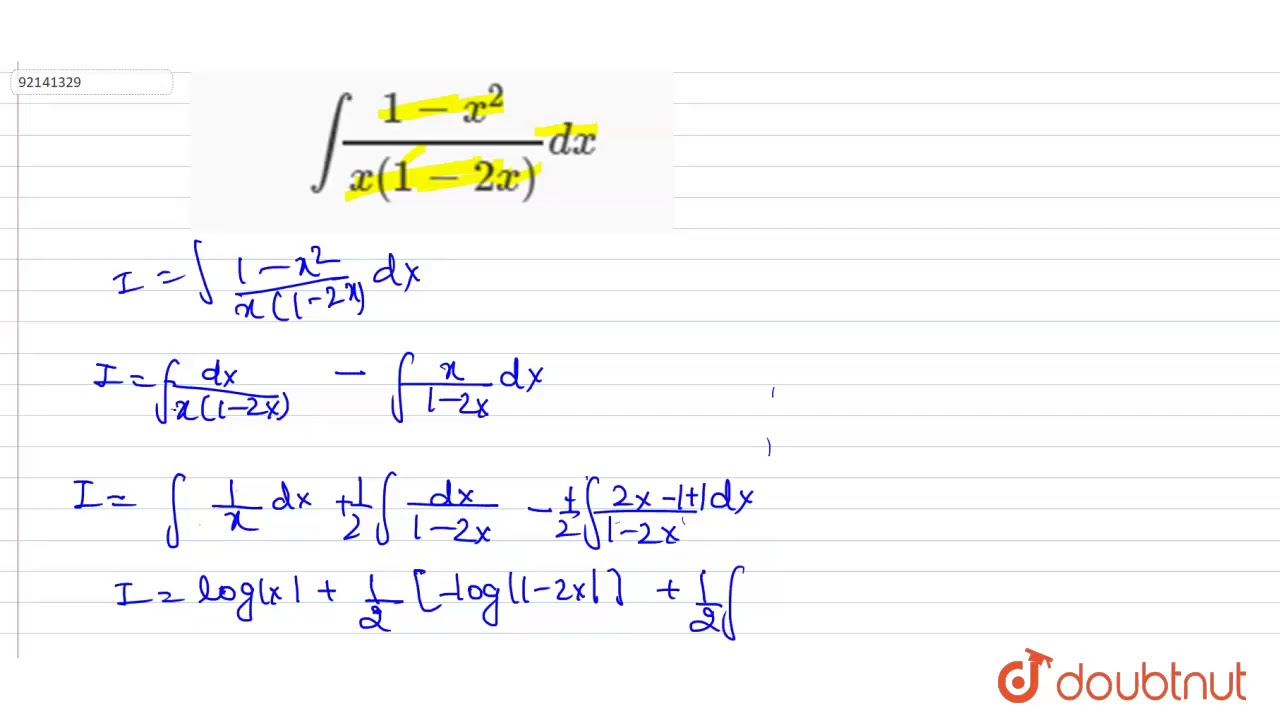 92141329
∫ (1 − x²)/(x(1 − 2x)) dx
I = ∫ (1 − x²)/(x(1 − 2x)) dx
I = ∫ dx/(x(1 − 2x)) − ∫ x/(1 − 2x) dx
I = ∫ 1/x dx + 1/2 ∫ dx/(1 − 2x) − 1/2 ∫ (2x − 1 + 1)/(1 − 2x) dx
I = log|x| + 1/2 [−log|1 − 2x|] + 1/2 ∫
doubtnut